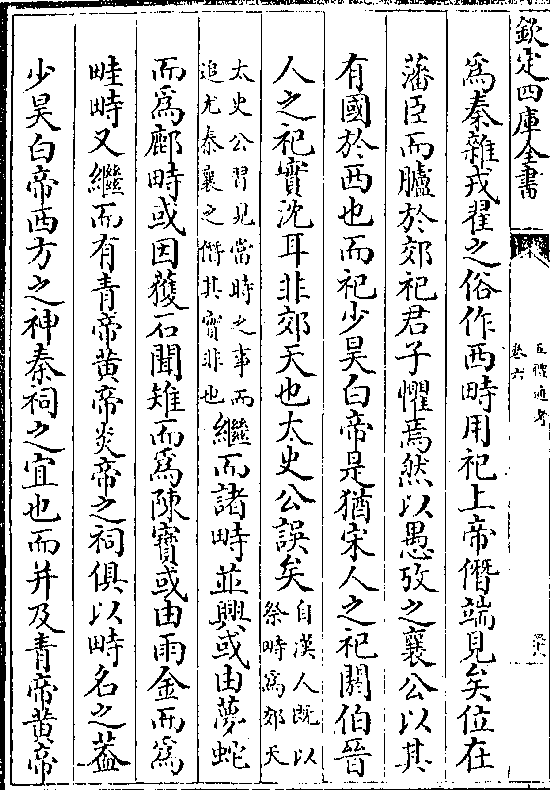 欽定四庫全書
五禮通考
卷六
爲秦雜戎翟之俗作西畤用祀上帝僭端見矣位在
藩臣而臚於郊祀君子懼焉然以愚攷之襄公以其
有國於西也而祀少昊白帝是猶宋人之祀閼伯晉
人之祀實沈耳非郊天也太史公誤矣自漢人既以祭畤爲郊天
太史公習見當時之事而追尤秦襄之僭其實非也繼而諸畤並興或由夢蛇
而爲鄜畤或因獲石聞雉而爲陳寶或由雨金而爲
畦畤又繼而有青帝黄帝炎帝之祠俱以畤名之葢
少昊白帝西方之神秦祠之宜也而并及青帝黄帝